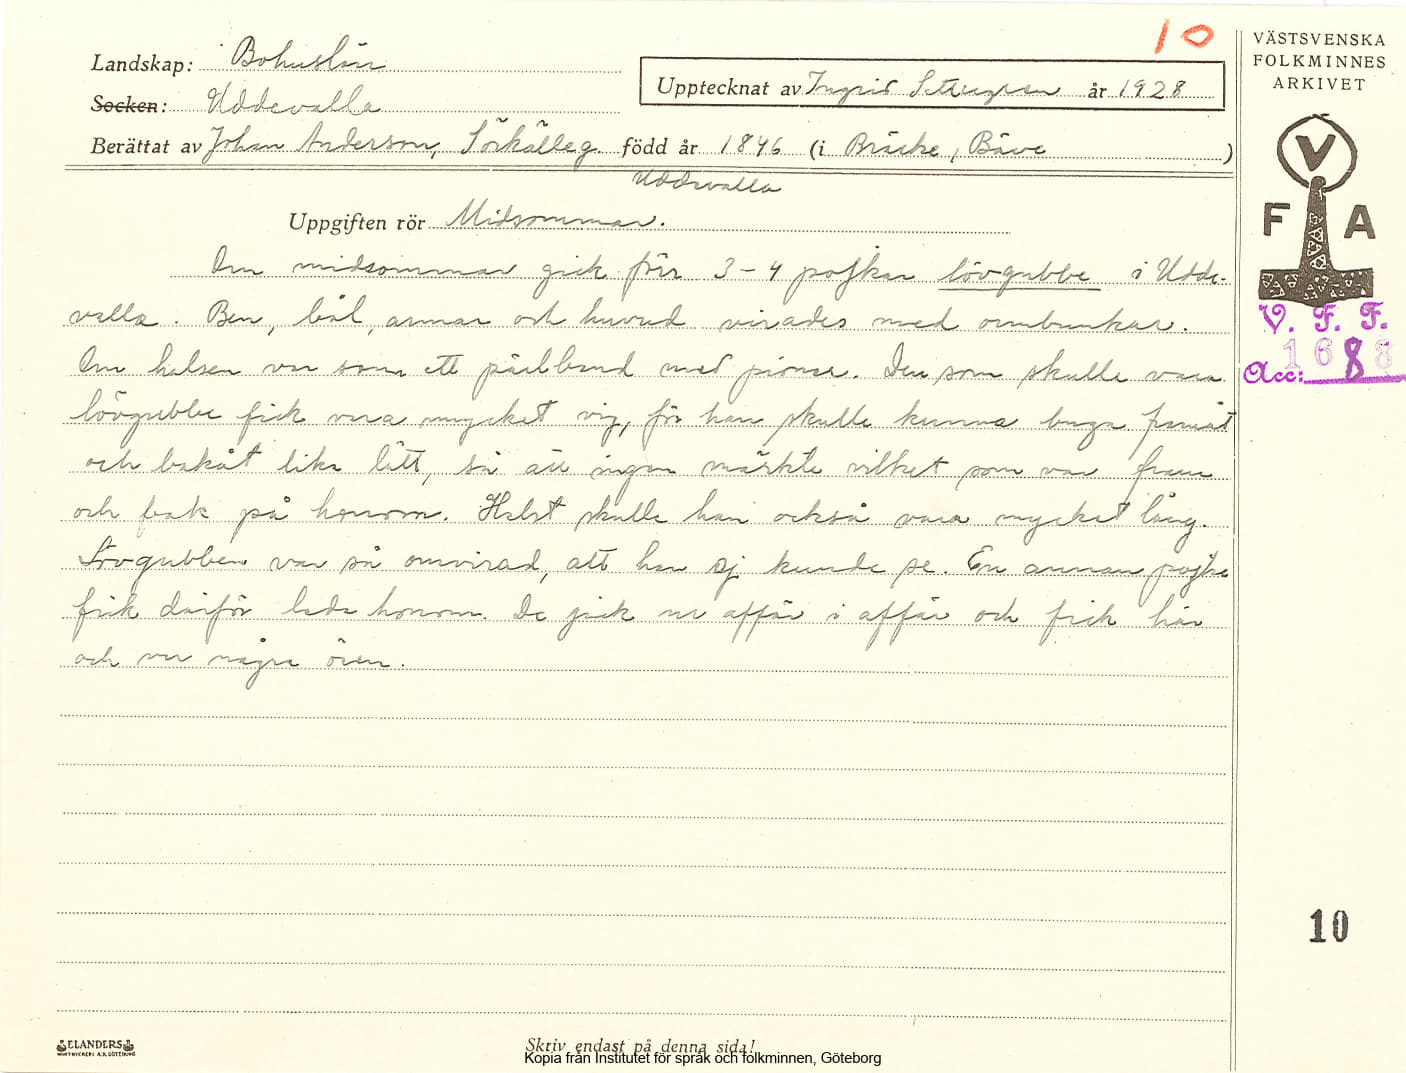 10
Landskap: Bohuslän
Socken: Uddevalla
Upptecknat av Ingrid år 1928
Berättat av Johan Anderson, Sörkälleg. född år 1846 (i Bräcke, Bäve )
Uddevalla
Uppgiften rör Midsommar.
Om midsommar gick förr 3-4 pojkar lövgubbe i Udde-
valla. Ben, bål, armar och huvud virades med ormbunkar.
Om halsen var som ett pärlband med pioner. Den som skulle vara
lövgubbe fick vara mycket vig, för han skulle kunna buga framåt
och bakåt lika lätt, så att ingen märkte vilket som var fram
och bak på honom. Helst skulle han också vara mycket lång.
Lövgubben var så omvirad, att han ej kunde se. En annan pojke
fick därför leda honom. De gick ur affär i affär och fick här
och var några ören.
VÄSTSVENSKA
FOLKMINNES
ARKIVET
V
F A
V. F. F.
Acc: 1688
10
ELANDERS
Skriv endast på denna sida!
Kopia från Institutet för språk och folkminnen, Göteborg